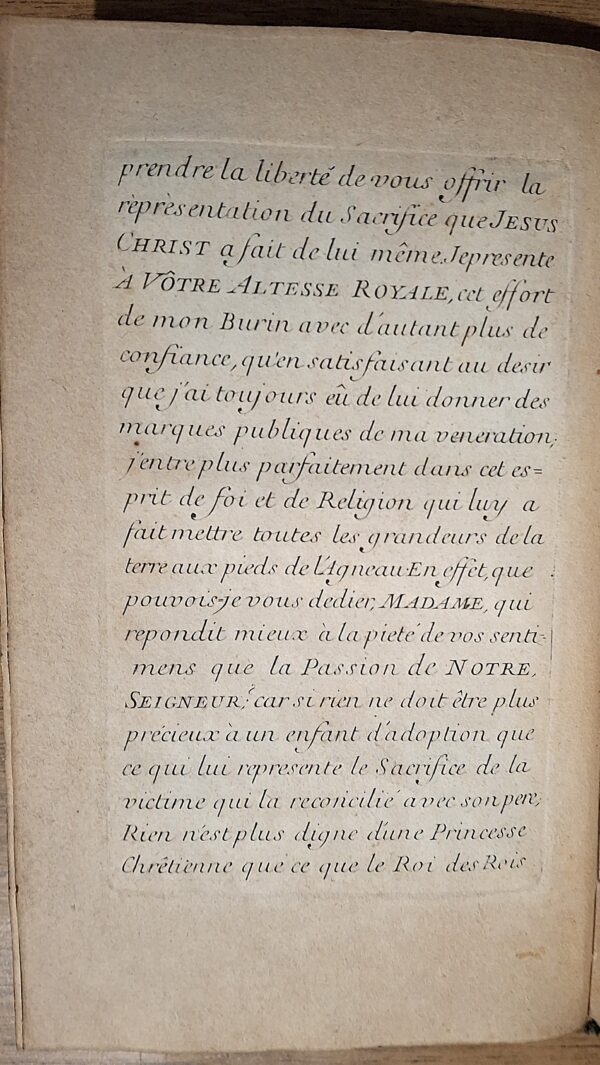 prendre la liberté de vous offrir la
rèprèsentation du Sacrifice que JESUS
CHRIST a fait de lui même. Je presente
À VÔTRE ALTESSE ROYALE, cet effort
de mon Burin avec d'autant plus de
confiance, qu'en satisfaisant au desir
que j'ai toujours eû de lui donner des
marques publiques de ma veneration,
j'entre plus parfaitement dans cet es=
prit de foi et de Religion qui luy a
fait mettre toutes les grandeurs de la
terre aux pieds de l'Agneau. En effet, que
pouvois-je vous dedier, MADAME, qui
repondit mieux à la pieté de vos senti-
mens que la Passion de NOTRE,
SEIGNEUR; car si rien ne doit être plus
précieux à un enfant d'adoption que
ce qui lui represente le Sacrifice de la
victime qui la reconcilié avec son pere,
Rien n'est plus digne d'une Princesse
Chrêtienne que ce que le Roi des Rois